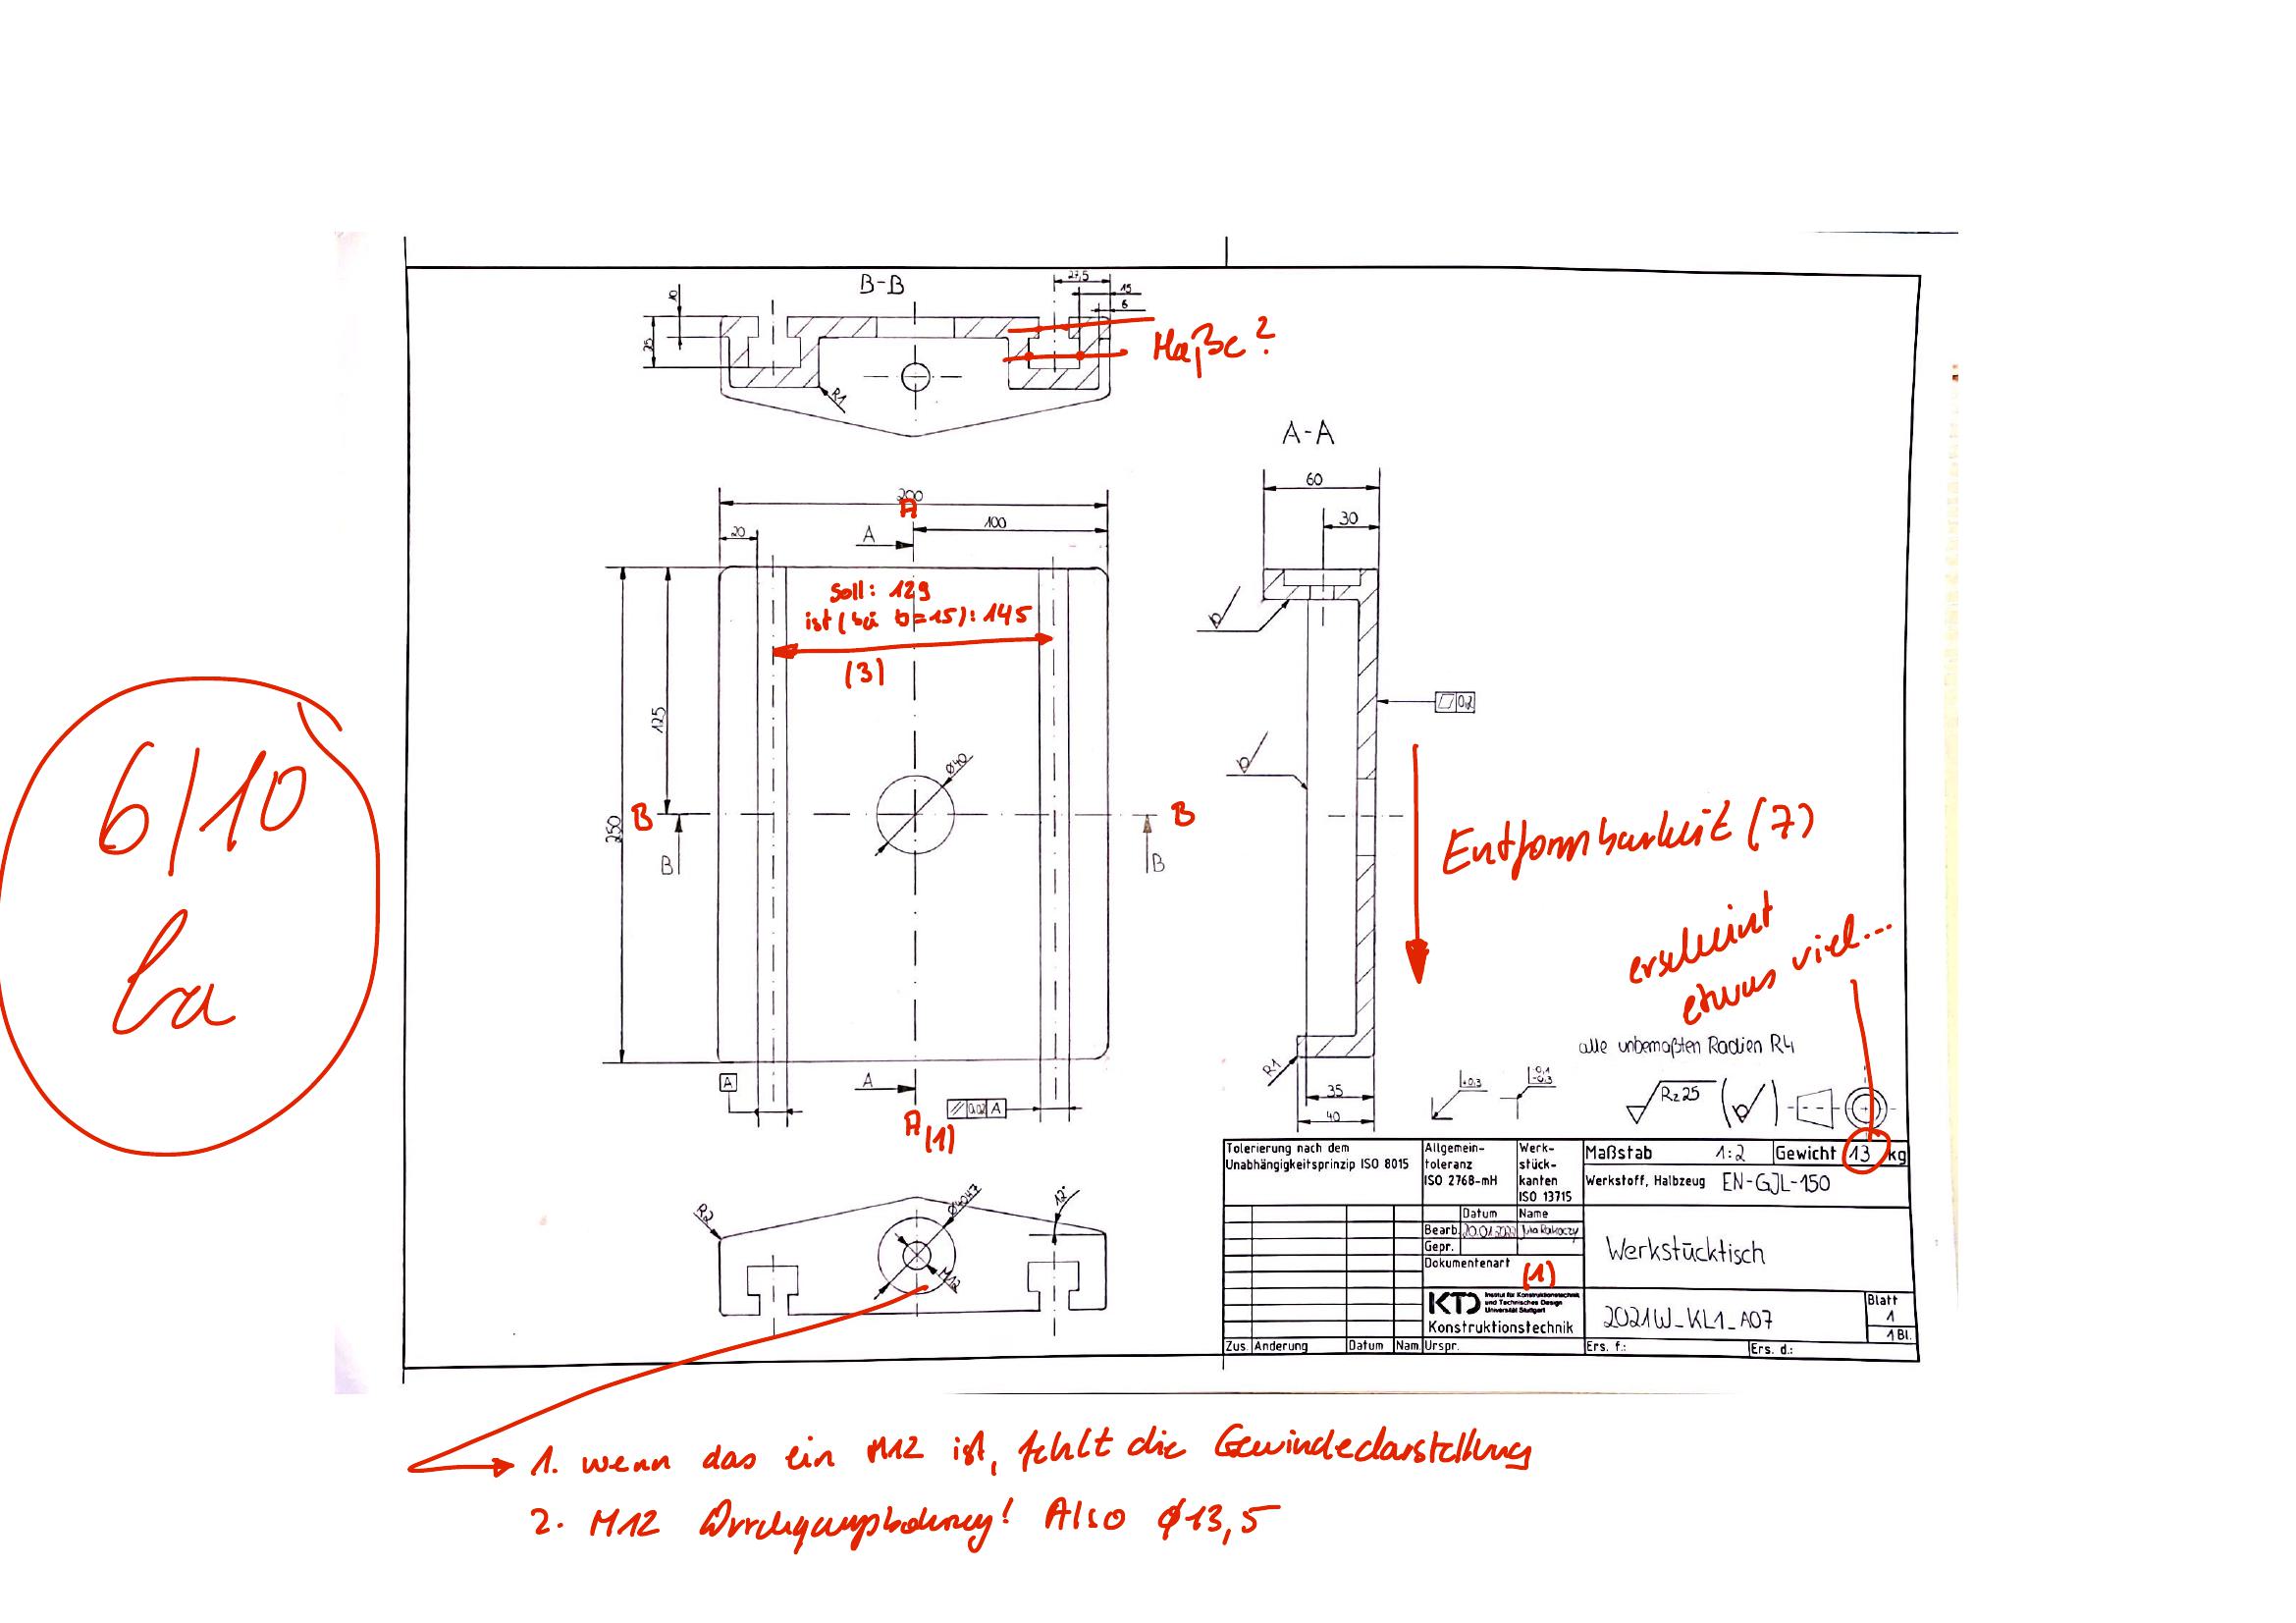 B-B
27,5
15
6
10
25
R1
Maße?
A-A
60
30
200
A
100
20
A
soll: 129
ist (bei b=15): 145
(3)
125
250
⌀40
B
B
B
B
0,2
Entformbarkeit (7)
erscheint
etwas viel...
6/10
alle unbemaßten Radien R4
Rz 25
+0,3
-0,1
-0,3
R1
35
40
A
A
// 0,02 A
A (1)
R2
⌀40H7
12°
M12
Tolerierung nach dem
Unabhängigkeitsprinzip ISO 8015
Allgemein-
toleranz
ISO 2768-mH
Werk-
stück-
kanten
ISO 13715
Maßstab 1:2
Gewicht 13 kg
Werkstoff, Halbzeug EN-GJL-150
Datum Name
Bearb. 20.01.2022
Gepr.
Dokumentenart
(1)
Werkstücktisch
KTD
Institut für Konstruktionstechnik
und Technisches Design
Universität Stuttgart
Konstruktionstechnik
2021W_KL1_A07
Blatt
1
1 Bl.
Zus. Änderung Datum Nam. Urspr. Ers. f.: Ers. d.:
1. wenn das ein M12 ist, fehlt die Gewindedarstellung
2. M12 Durchgangsbohrung! Also ⌀13,5